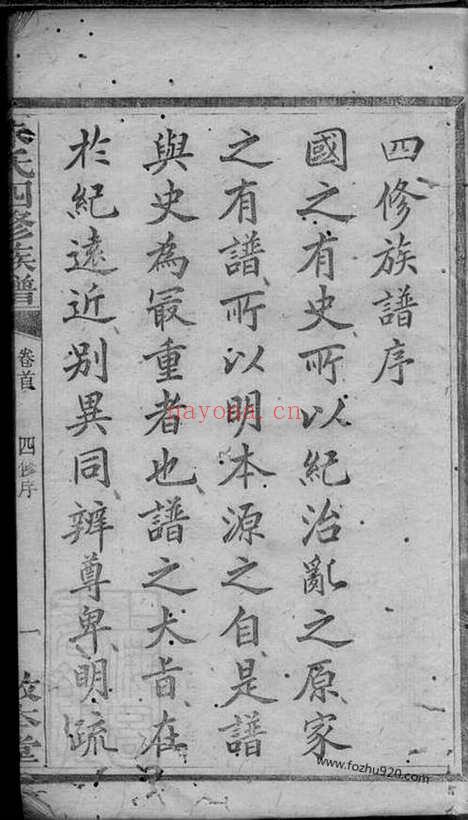 四修族譜序
國之有史所以紀治亂之原家
之有譜所以明本源之自是譜
與史為冣重者也譜之大旨在
於紀遠近别異同辨尊卑明疏
氏四修族譜
卷首
四修序
一
堂
nayoaa.cn
www.fozhu920.com